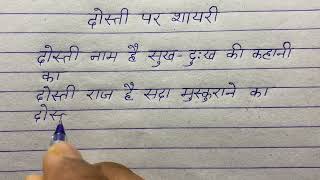 दोस्ती पर शायरी
दोस्ती नाम है सुख-दुःख की कहानी
का
दोस्ती राज है सदा मुस्कुराने का
दोस